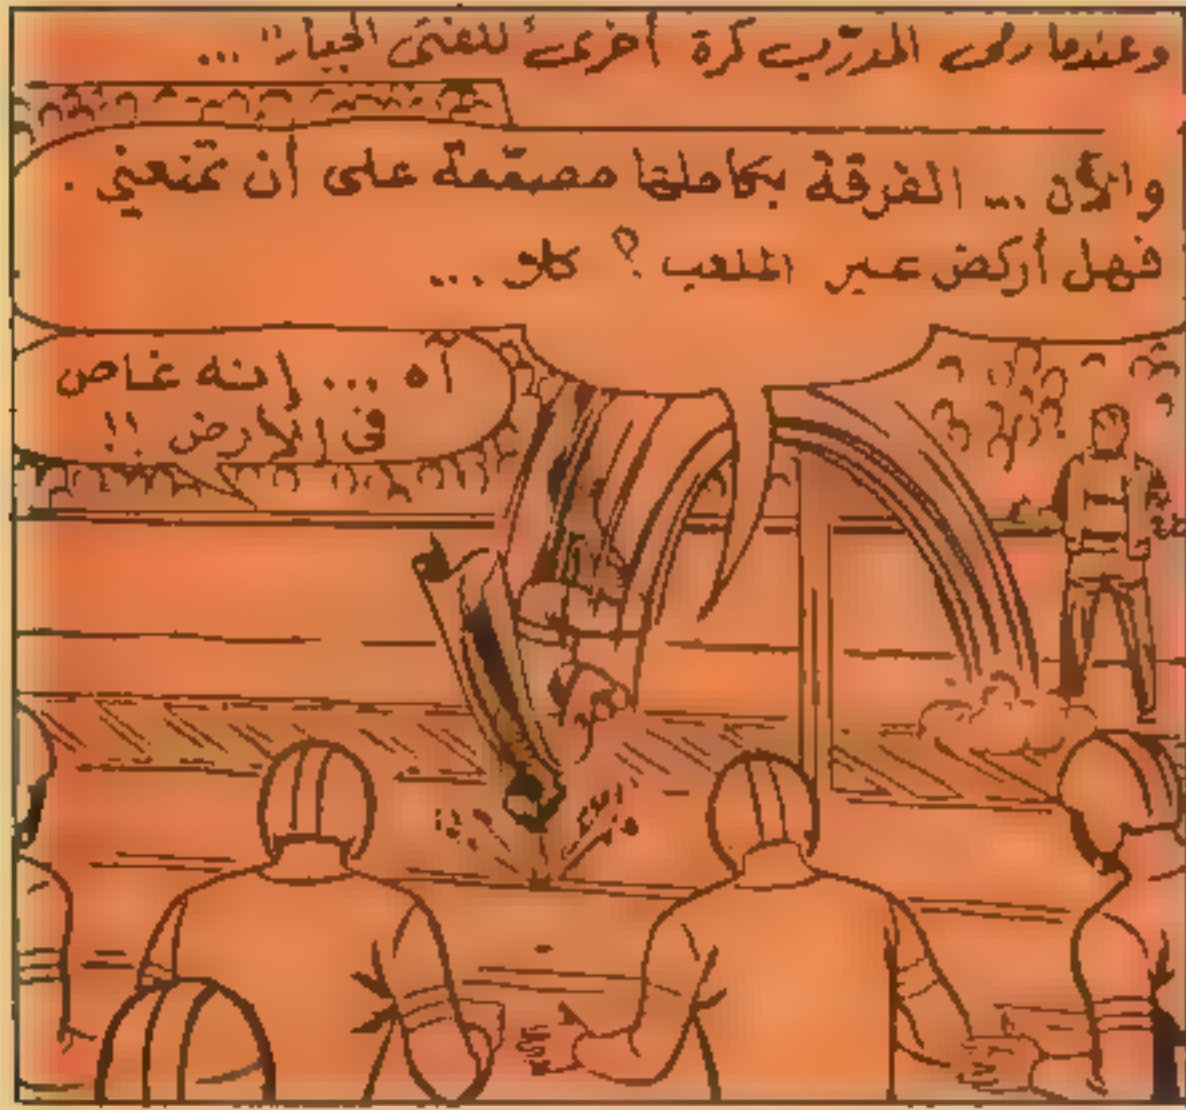 وعندما رمى المدرّب كرة أخرى "للفتى الجبار" ...
والآن ... الفرقة بكاملها مصمّمة على أن تمنعني .
فهل أركض عبر الملعب ؟ كلا ...
آه ... إنه غاص
في الأرض !!